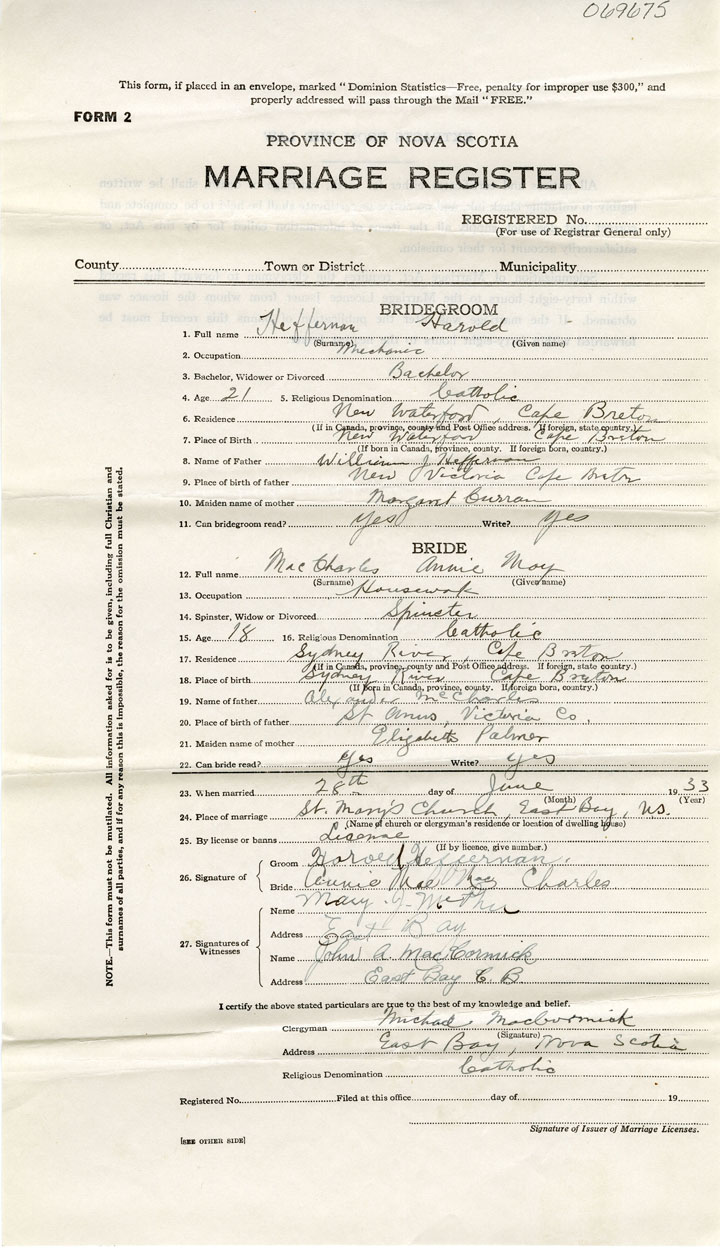 069675
This form, if placed in an envelope, marked "Dominion Statistics—Free, penalty for improper use $300," and
properly addressed will pass through the Mail "FREE."
FORM 2
PROVINCE OF NOVA SCOTIA
MARRIAGE REGISTER
REGISTERED No.
(For use of Registrar General only)
County Town or District Municipality
BRIDEGROOM
1. Full name Heffernan Harold
(Surname) (Given name)
2. Occupation Mechanic
3. Bachelor, Widower or Divorced Bachelor
4. Age 21 5. Religious Denomination Catholic
6. Residence New Waterford, Cape Breton
(If in Canada, province, county and Post Office address. If foreign, state country.)
7. Place of Birth New Waterford Cape Breton
(If born in Canada, province, county. If foreign born, country.)
8. Name of Father William J Heffernan
9. Place of birth of father New Victoria Cape Breton
10. Maiden name of mother Margaret Curran
11. Can bridegroom read? Yes Write? Yes
BRIDE
12. Full name Mac Charles Annie May
(Surname) (Given name)
13. Occupation Housework
14. Spinster, Widow or Divorced Spinster
15. Age 18 16. Religious Denomination Catholic
17. Residence Sydney River, Cape Breton
(If in Canada, province, county and Post Office address. If foreign, state country.)
18. Place of birth Sydney River Cape Breton
(If Born in Canada, province, county. If foreign born, country.)
19. Name of father Alexander McCharles
20. Place of birth of father St Anns, Victoria Co.
21. Maiden name of mother Elizabeth Palmer
22. Can bride read? Yes Write? Yes
23. When married 28th day of June 19 33
(Month) (Year)
24. Place of marriage St. Mary's Church, East Bay, N.S.
(Name of church or clergyman's residence or location of dwelling house)
25. By license or banns License
(If by licence, give number.)
26. Signature of
Groom Harold Heffernan.
Bride Annie Mae Mac Charles
27. Signatures of Witnesses
Name Mary J.
Address East Bay
Name John A. MacCormick
Address East Bay C. B.
I certify the above stated particulars are true to the best of my knowledge and belief.
Clergyman Michael MacCormick
(Signature)
Address East Bay, Nova Scotia
Religious Denomination Catholic
Registered No. Filed at this office day of 19
Signature of Issuer of Marriage Licenses.
[SEE OTHER SIDE]
NOTE.—This form must not be mutilated. All information asked for is to be given, including full Christian and
surnames of all parties, and if for any reason this is impossible, the reason for the omission must be stated.